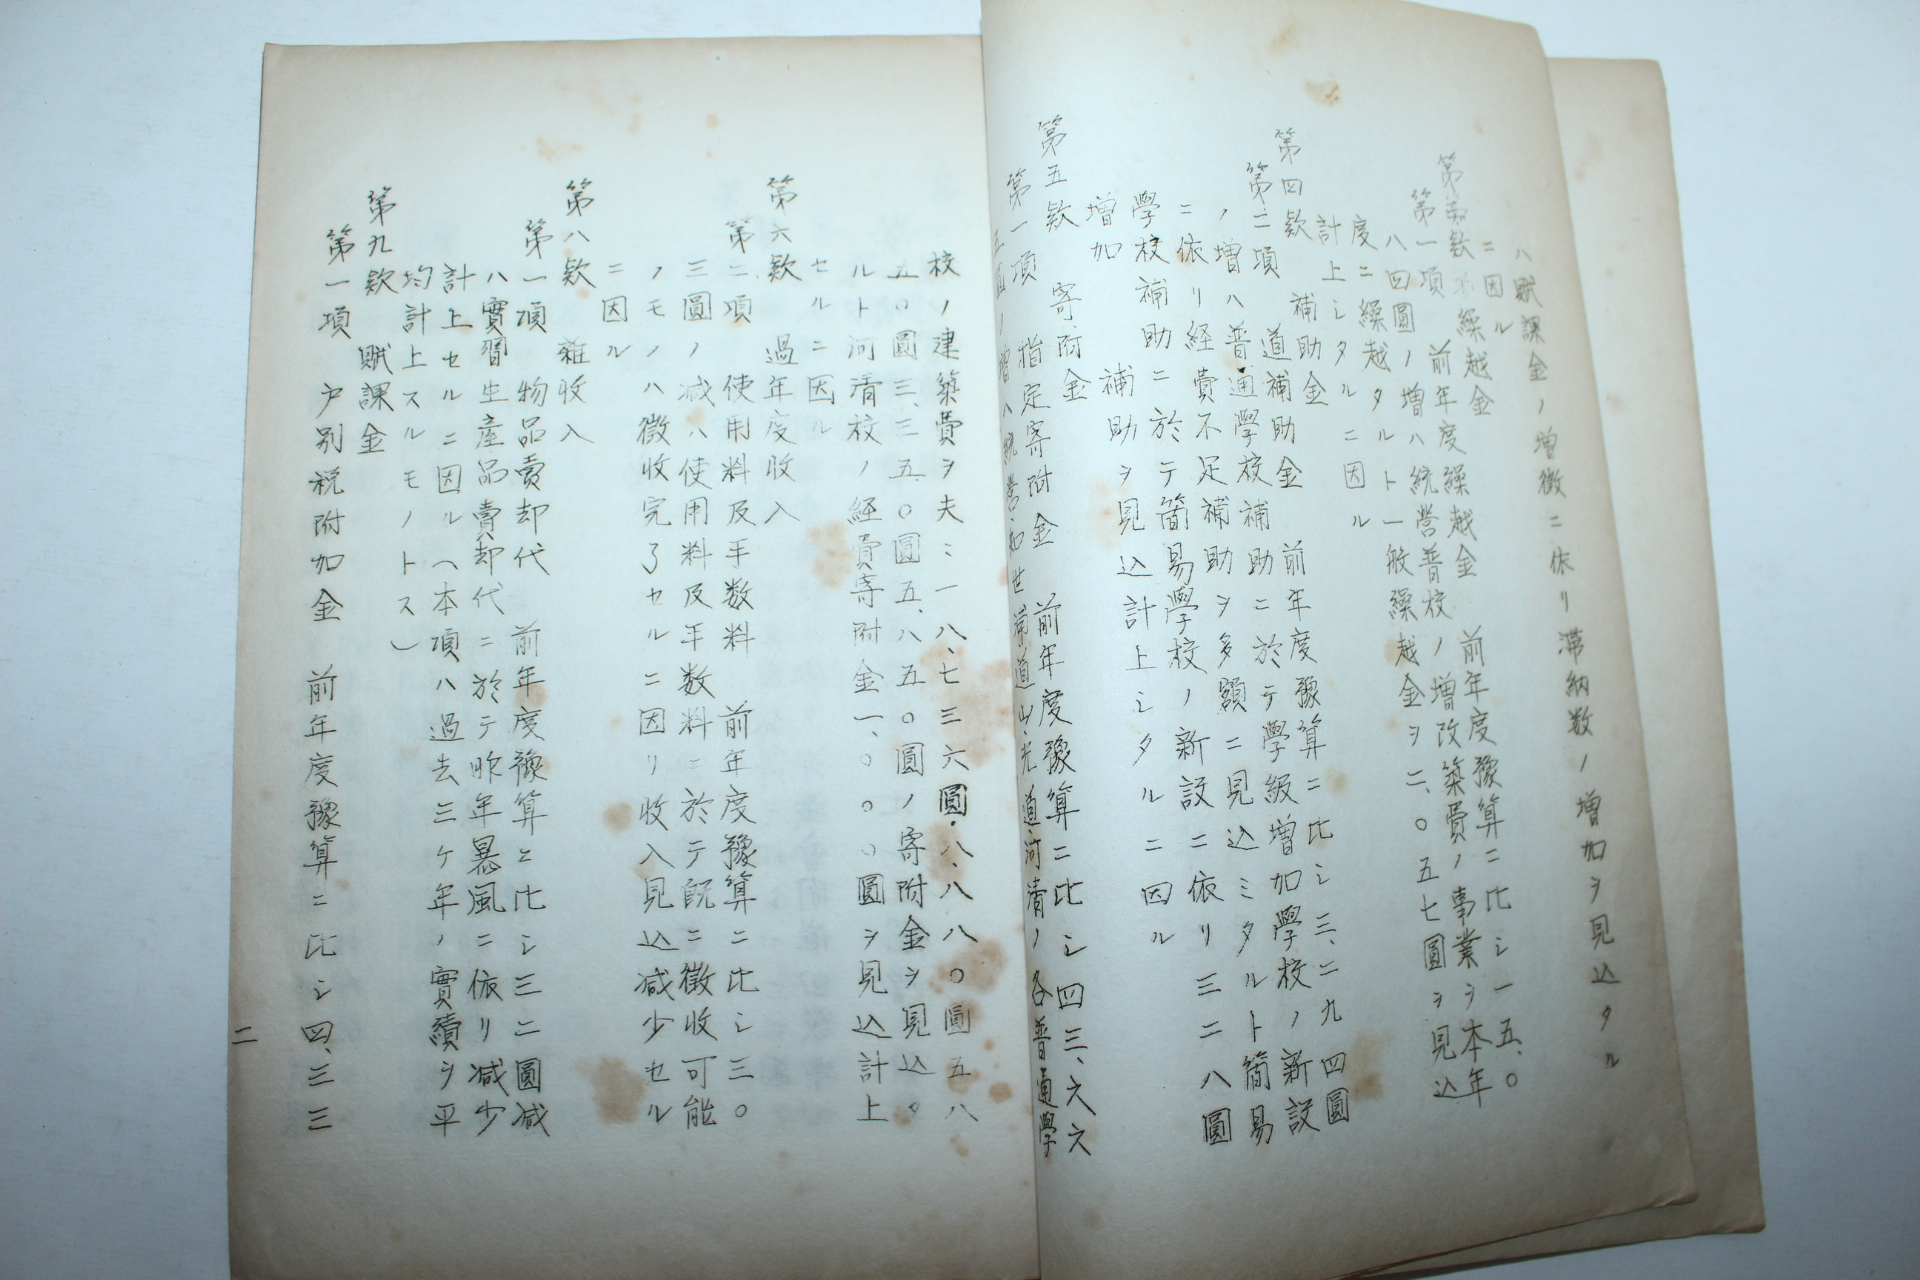 ハ賦課金ノ増徴ニ依リ滞納数ノ増加ヲ見込タル
ニ因ル
第 款 繰越金
第一項 前年度繰越金 前年度豫算ニ比シ一五、〇
八四圓ノ増ハ統営普校ノ増改築費ノ事業ヲ本年
度ニ繰越タルト一般繰越金ヲ二、〇五七圓ヲ見込
計上シタルニ因ル
第四款 補助金
第二項 道補助金 前年度豫算ニ比シ三、二九四圓
ノ増ハ普通學校補助ニ於テ學級増加學校ノ新設
ニ依リ経費不足補助ヲ多額ニ見込ミタルト簡易
學校補助ニ於テ簡易學校ノ新設ニ依リ三二八圓
増加 補助ヲ見込計上シタルニ因ル
第五款 寄附金
第一項 指定寄附金 前年度豫算ニ比シ四三、六六
五圓ノ増ハ統営、 道山、光道、河清ノ各普通學
校ノ建築費ヲ夫ミ一八、七三六圓、八、八八〇圓五八
五〇圓三、三五〇圓五、八五〇圓ノ寄附金ヲ見込、
ルト河清校ノ経費寄附金一、〇〇〇圓ヲ見込計上
セルニ因ル
第六款 過年度収入
第二項 使用料及手数料 前年度豫算ニ比シ三〇
三圓ノ减ハ使用料及手数料ニ於テ既ニ徴収可能
ノモノハ徴収完了セルニ因リ収入見込减少セル
ニ因ル
第八款 雜收入
第一項 物品賣却代 前年度豫算ニ比シ三二圓减
ハ實習生産品賣却代ニ於テ昨年暴風ニ依リ减少
計上セルニ因ル（本項ハ過去三ケ年ノ實績ヲ平
均計上スルモノトス）
第九款 賦課金
第一項 戸別税附加金 前年度豫算ニ比シ四、三三
二